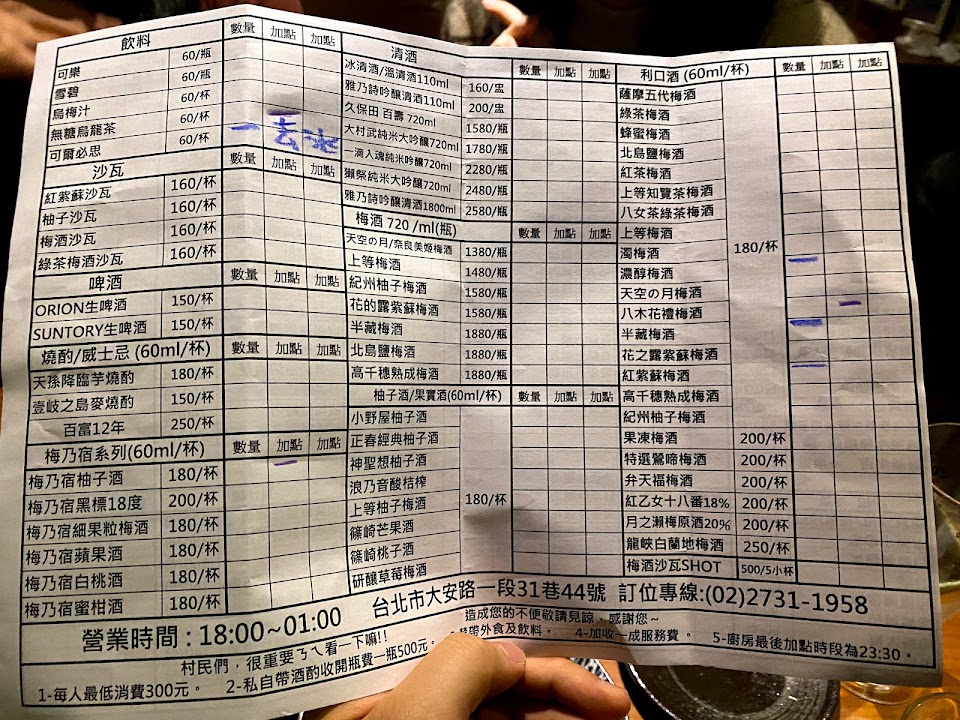 飲料 數量 加點 加點
可樂 60/瓶
雪碧 60/瓶
烏梅汁 60/杯
無糖烏龍茶 60/杯 一 去冰
可爾必思 60/杯
沙瓦 數量 加點 加點
紅紫蘇沙瓦 160/杯
柚子沙瓦 160/杯
梅酒沙瓦 160/杯
綠茶梅酒沙瓦 160/杯
啤酒 數量 加點 加點
ORION生啤酒 150/杯
SUNTORY生啤酒 150/杯
燒酌/威士忌 (60ml/杯) 數量 加點 加點
天孫降臨芋燒酌 180/杯
壹岐之島麥燒酌 150/杯
百富12年 250/杯
梅乃宿系列(60ml/杯) 數量 加點 加點
梅乃宿柚子酒 180/杯
梅乃宿黑標18度 200/杯
梅乃宿細果粒梅酒 180/杯
梅乃宿蘋果酒 180/杯
梅乃宿白桃酒 180/杯
梅乃宿蜜柑酒 180/杯
清酒 數量 加點 加點
冰清酒/溫清酒110ml 160/盅
雅乃詩吟釀清酒110ml 200/盅
久保田 百壽 720ml 1580/瓶
大村武純米大吟釀720ml 1780/瓶
一滴入魂純米吟釀720ml 2280/瓶
獺祭純米大吟釀720ml 2480/瓶
雅乃詩吟釀清酒1800ml 2580/瓶
梅酒 720 /ml(瓶) 數量 加點 加點
天空の月/奈良美姬梅酒 1380/瓶
上等梅酒 1480/瓶
紀州柚子梅酒 1580/瓶
花的露紫蘇梅酒 1580/瓶
半藏梅酒 1880/瓶
北島鹽梅酒 1880/瓶
高千穗熟成梅酒 1880/瓶
柚子酒/果實酒(60ml/杯) 數量 加點 加點
小野屋柚子酒
正春經典柚子酒
神聖想柚子酒
浪乃音酸桔榨
上等柚子梅酒 180/杯
篠崎芒果酒
篠崎桃子酒
研釀草莓梅酒
利口酒 (60ml/杯) 數量 加點 加點
薩摩五代梅酒
綠茶梅酒
蜂蜜梅酒
北島鹽梅酒
紅茶梅酒
上等知覽茶梅酒
八女茶綠茶梅酒
上等梅酒 180/杯
濁梅酒
濃醇梅酒
天空の月梅酒
八木花禮梅酒
半藏梅酒
花之露紫蘇梅酒
紅紫蘇梅酒
高千穗熟成梅酒
紀州柚子梅酒
果凍梅酒 200/杯
特選鶯啼梅酒 200/杯
弁天福梅酒 200/杯
紅乙女十八番18% 200/杯
月之瀨梅原酒20% 200/杯
龍峽白蘭地梅酒 250/杯
梅酒沙瓦SHOT 500/5小杯
營業時間：18:00~01:00 台北市大安路一段31巷44號 訂位專線:(02)2731-1958
村民們，很重要ㄋㄟ看一下嘛!! 造成您的不便敬請見諒，感謝您~
1-每人最低消費300元。 2-私自帶酒酌收開瓶費一瓶500元。 帶外食及飲料。 4-加收一成服務費。 5-廚房最後加點時段為23:30。